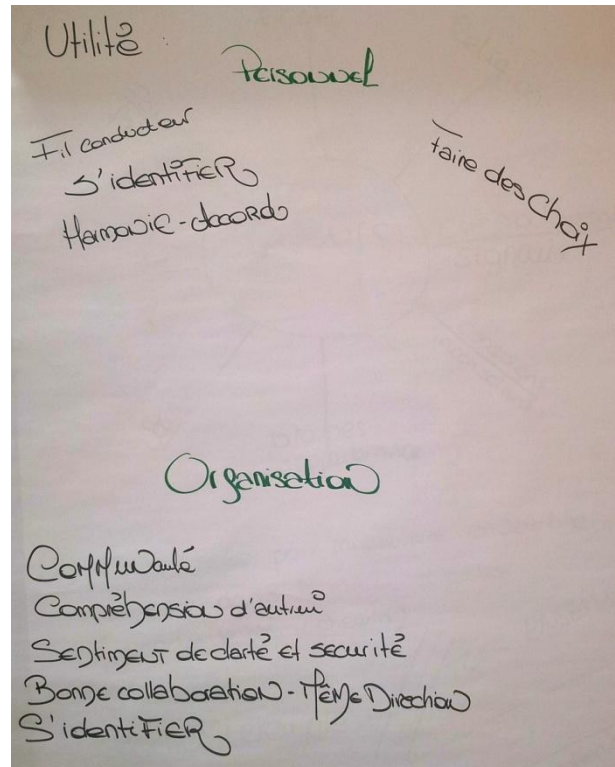 Utilité :
Personnel
Fil conducteur
S'identifier
Harmonie - accord
Faire des choix
Organisation
Communauté
Compréhension d'autrui
Sentiment de clarté et securité
Bonne collaboration - Même Direction
S'identifier